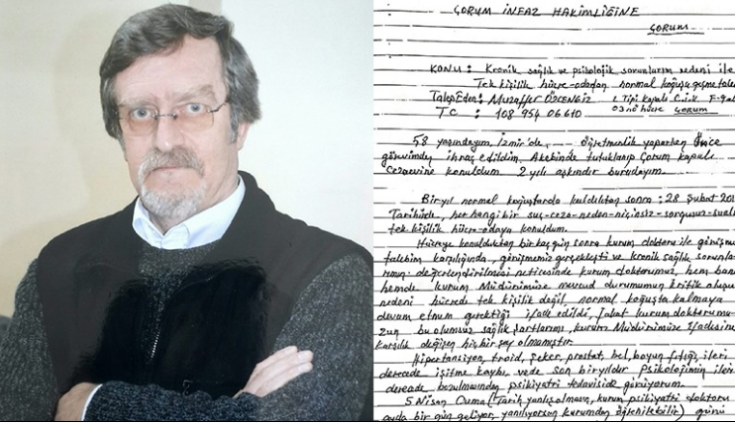 ÇORUM İNFAZ HAKİMLİĞİNE
ÇORUM
KONU: Kronik, sağlık ve psikolojik sorunlarım nedeni ile
Tek kişilik hücre-odadan normal koğuşa geçme
Talep Eden: Muzaffer ÖZCENGİZ L Tipi Kapalı
TC : 108 954 06610 hücre ÇORUM
58 yaşındayım, İzmir'de, öğretmenlik yaparken önce
görevimden ihraç edildim. Akebinde tutuklanıp Çorum kapalı
Cezaevine konuldum 2 yılı aşkındır buradayım.
Bir yıl normal koğuşlarda kaldıktan sonra: 28 Şubat
Tarihinde, her hangi bir suç-ceza-neden-niçinsiz-sorgusuz
tek kişilik hücre-odaya konuldum.
Hücreye konulduktan bir kaç gün sonra kurum doktoru ile
talebim karşılığında, görüşmemiz gerçekleşti ve kronik sağlık
değerlendirilmesi neticesinde kurum doktorumuz, hem bana
hemde kurum Müdürümüze mevcud durumumun kritik
nedeni hücrede tek kişilik değil, normal koğuşta kalmaya
devam etmem gerektiği ifade edildi, fakat kurum
zun bu olumsuz sağlık şartlarımı, kurum Müdürümüze ifadesine
karşılık değişen hiç bir şey olmamıştır.
Hipertansiyon, troid, şeker, prostat, bel, boyun fıtığı, ileri
derecede işitme kaybı, vede son bir yıldır Psikolojimin ileri
derecede bozulmasından psikiyatri tedaviside görüyorum.
5 Nisan Cuma (Tarih yanlış olmasın, kurum psikiyatri doktoru
ayda bir gün geliyor, yanılıyorsam kurumdan öğrenilebilir) günü